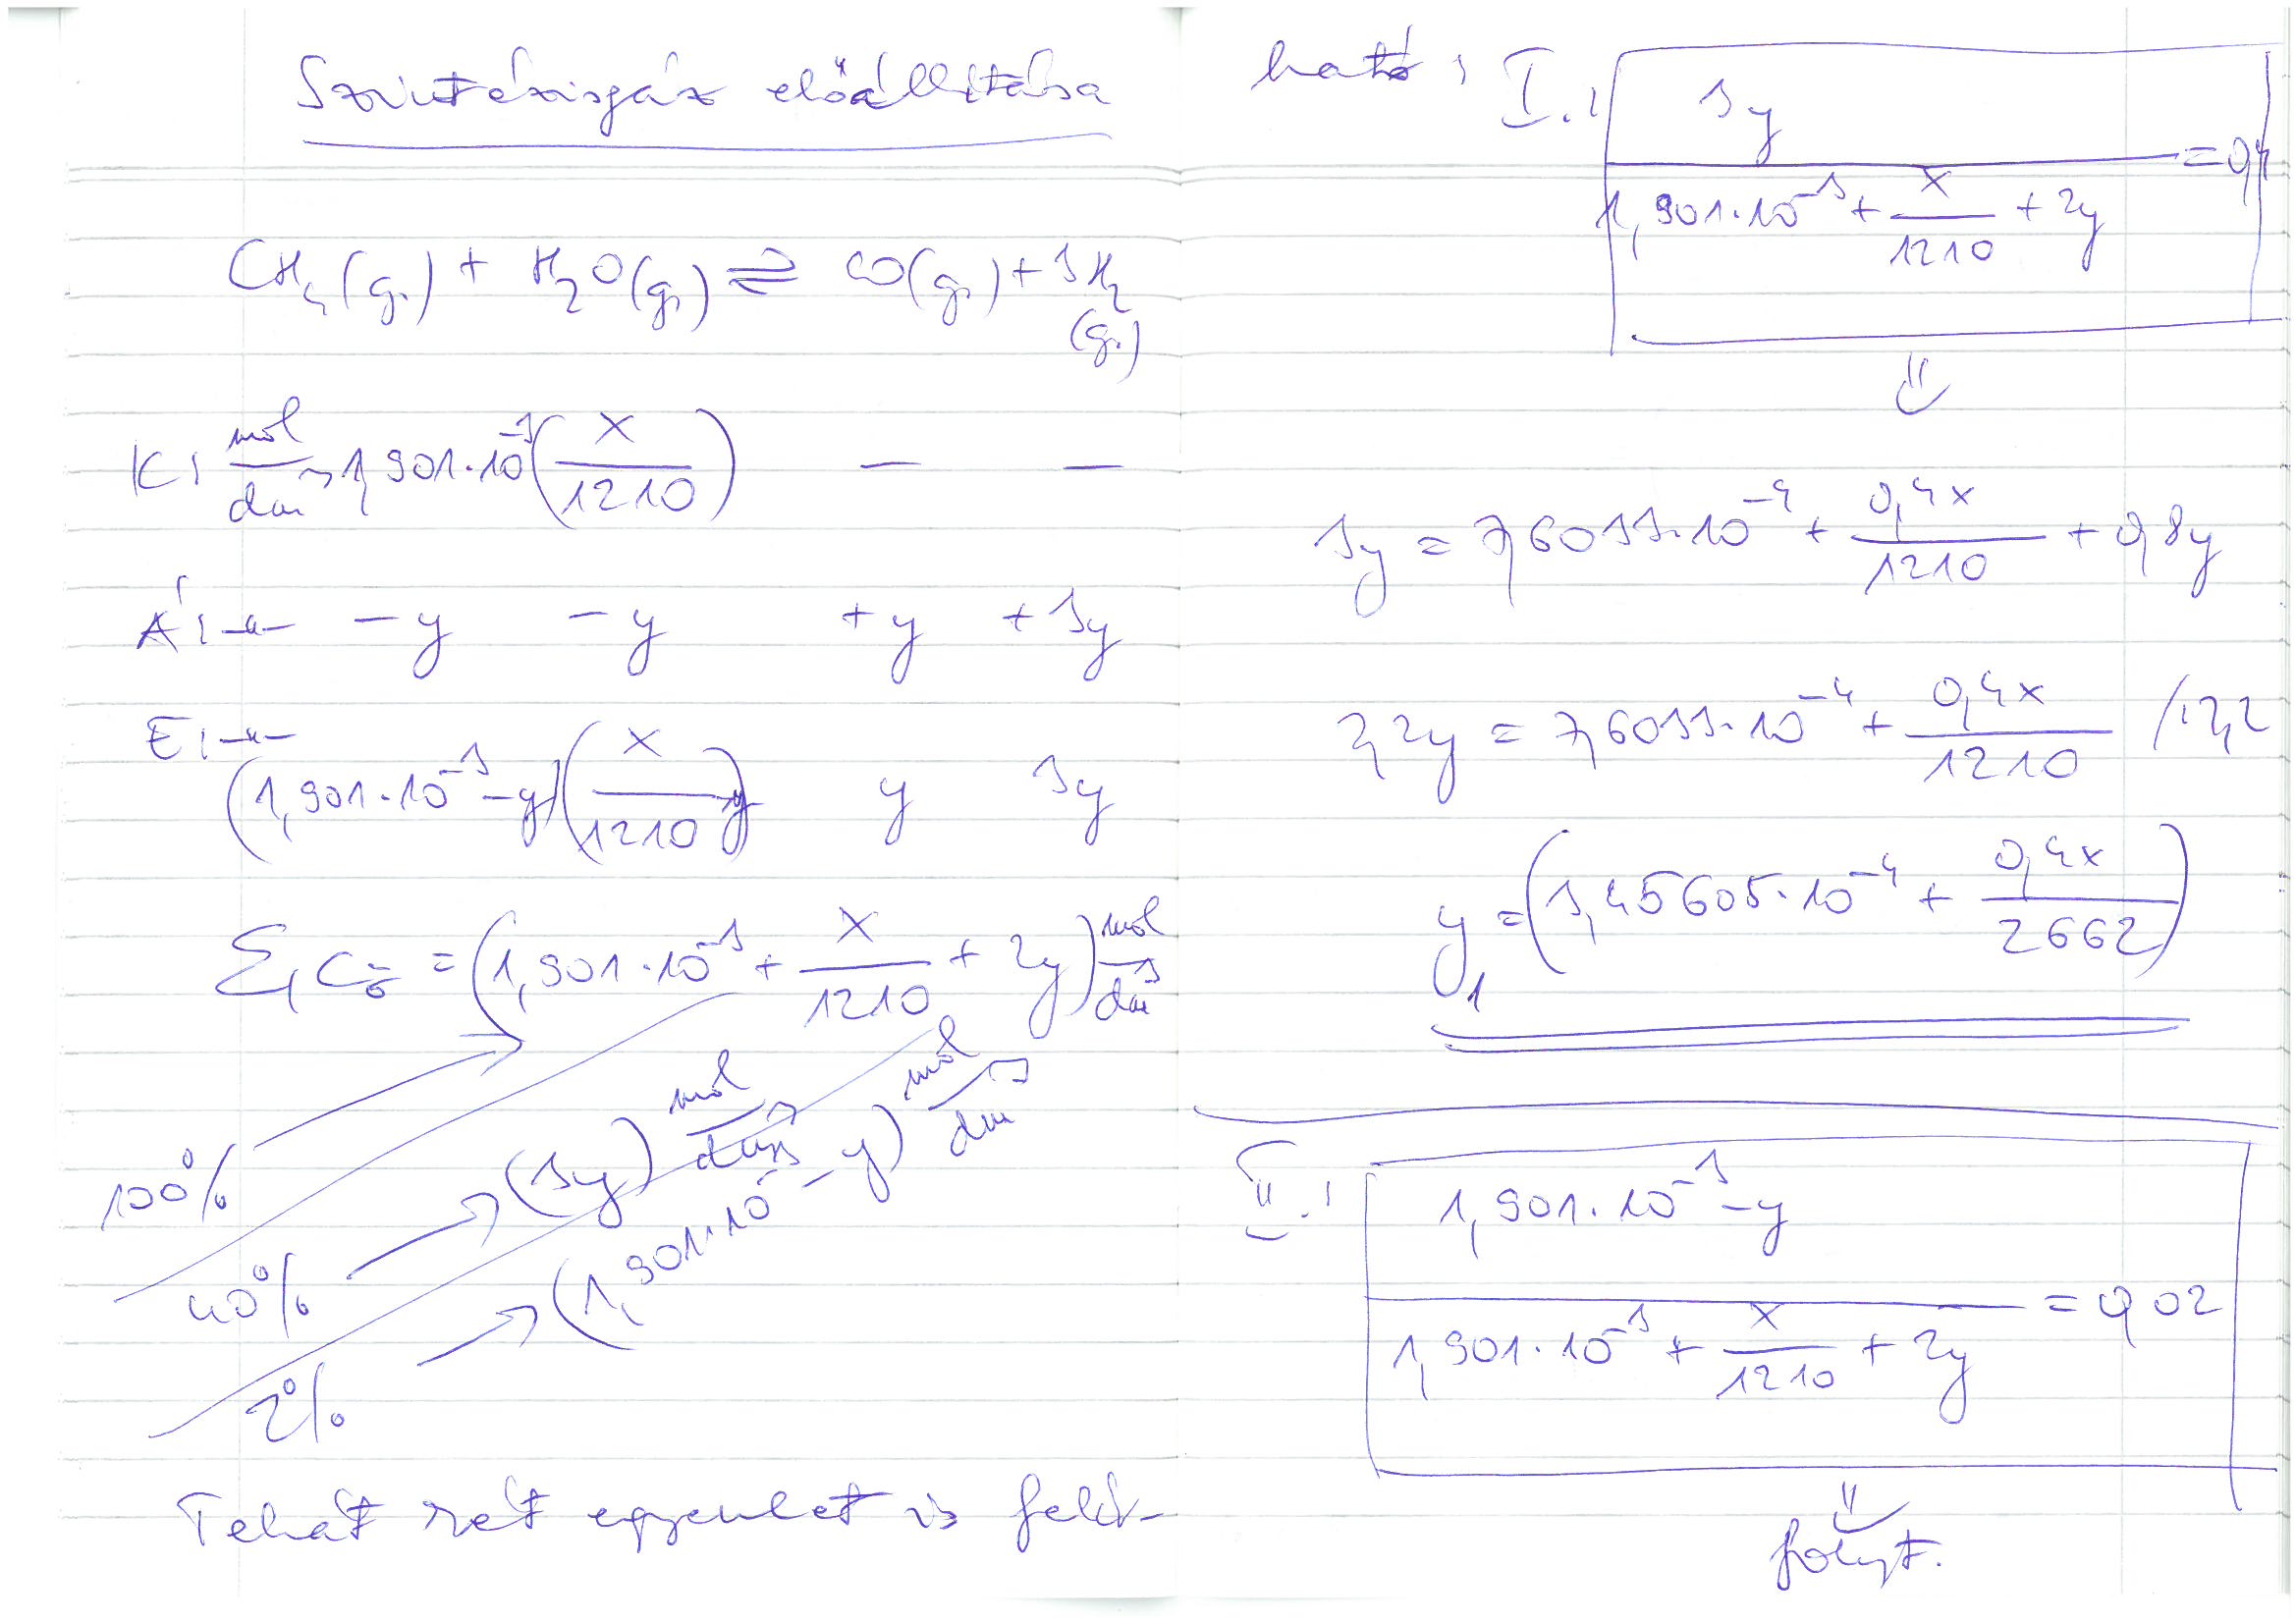 Szintézisgáz előállítása
CH₄(g.) + H₂O(g.) ⇌ CO(g.) + 3H₂
(g.)
K: mol/dm³ 1,901·10⁻³ (x/1210) — —
Á: -"- -y -y +y +3y
E: -"-
(1,901·10⁻³-y) (x/1210 -y) y 3y
Σ, c_ö = (1,901·10⁻³ + x/1210 + 2y) mol/dm³
100%
40% → (3y) mol/dm³
2% → (1,901·10⁻³-y) mol/dm³
Tehát két egyenlet is felír-
ható: I.:
3y / (1,901·10⁻³ + x/1210 + 2y) = 0,4
⇓
3y = 7,6033·10⁻⁴ + 0,4x/1210 + 0,8y
2,2y = 7,6033·10⁻⁴ + 0,4x/1210 /:2,2
y₁ = (3,45605·10⁻⁴ + 0,4x/2662)
II.:
(1,901·10⁻³-y) / (1,901·10⁻³ + x/1210 + 2y) = 0,02
⇓
folyt.